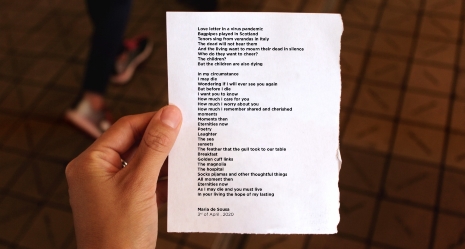 Love letter in a virus pandemic
Bagpipes played in Scotland
Tenors sing from verandas in Italy
The dead will not hear them
And the living want to mourn their dead in silence
Who do they want to cheer?
The children?
But the children are also dying
In my circumstance
I may die
Wondering if I will ever see you again
But before I die
I want you to know
How much I care for you
How much I worry about you
How much I remember shared and cherished
moments
Moments then
Eternities now
Poetry
Laughter
The sea
sunsets
The feather that the gull took to our table
Breakfast
Golden cuff links
The magnolia
The hospital
Socks pijamas and other thoughtful things
All moment then
Eternities now
As I may die and you must live
In your living the hope of my lasting
Maria de Sousa
3rd of April, 2020